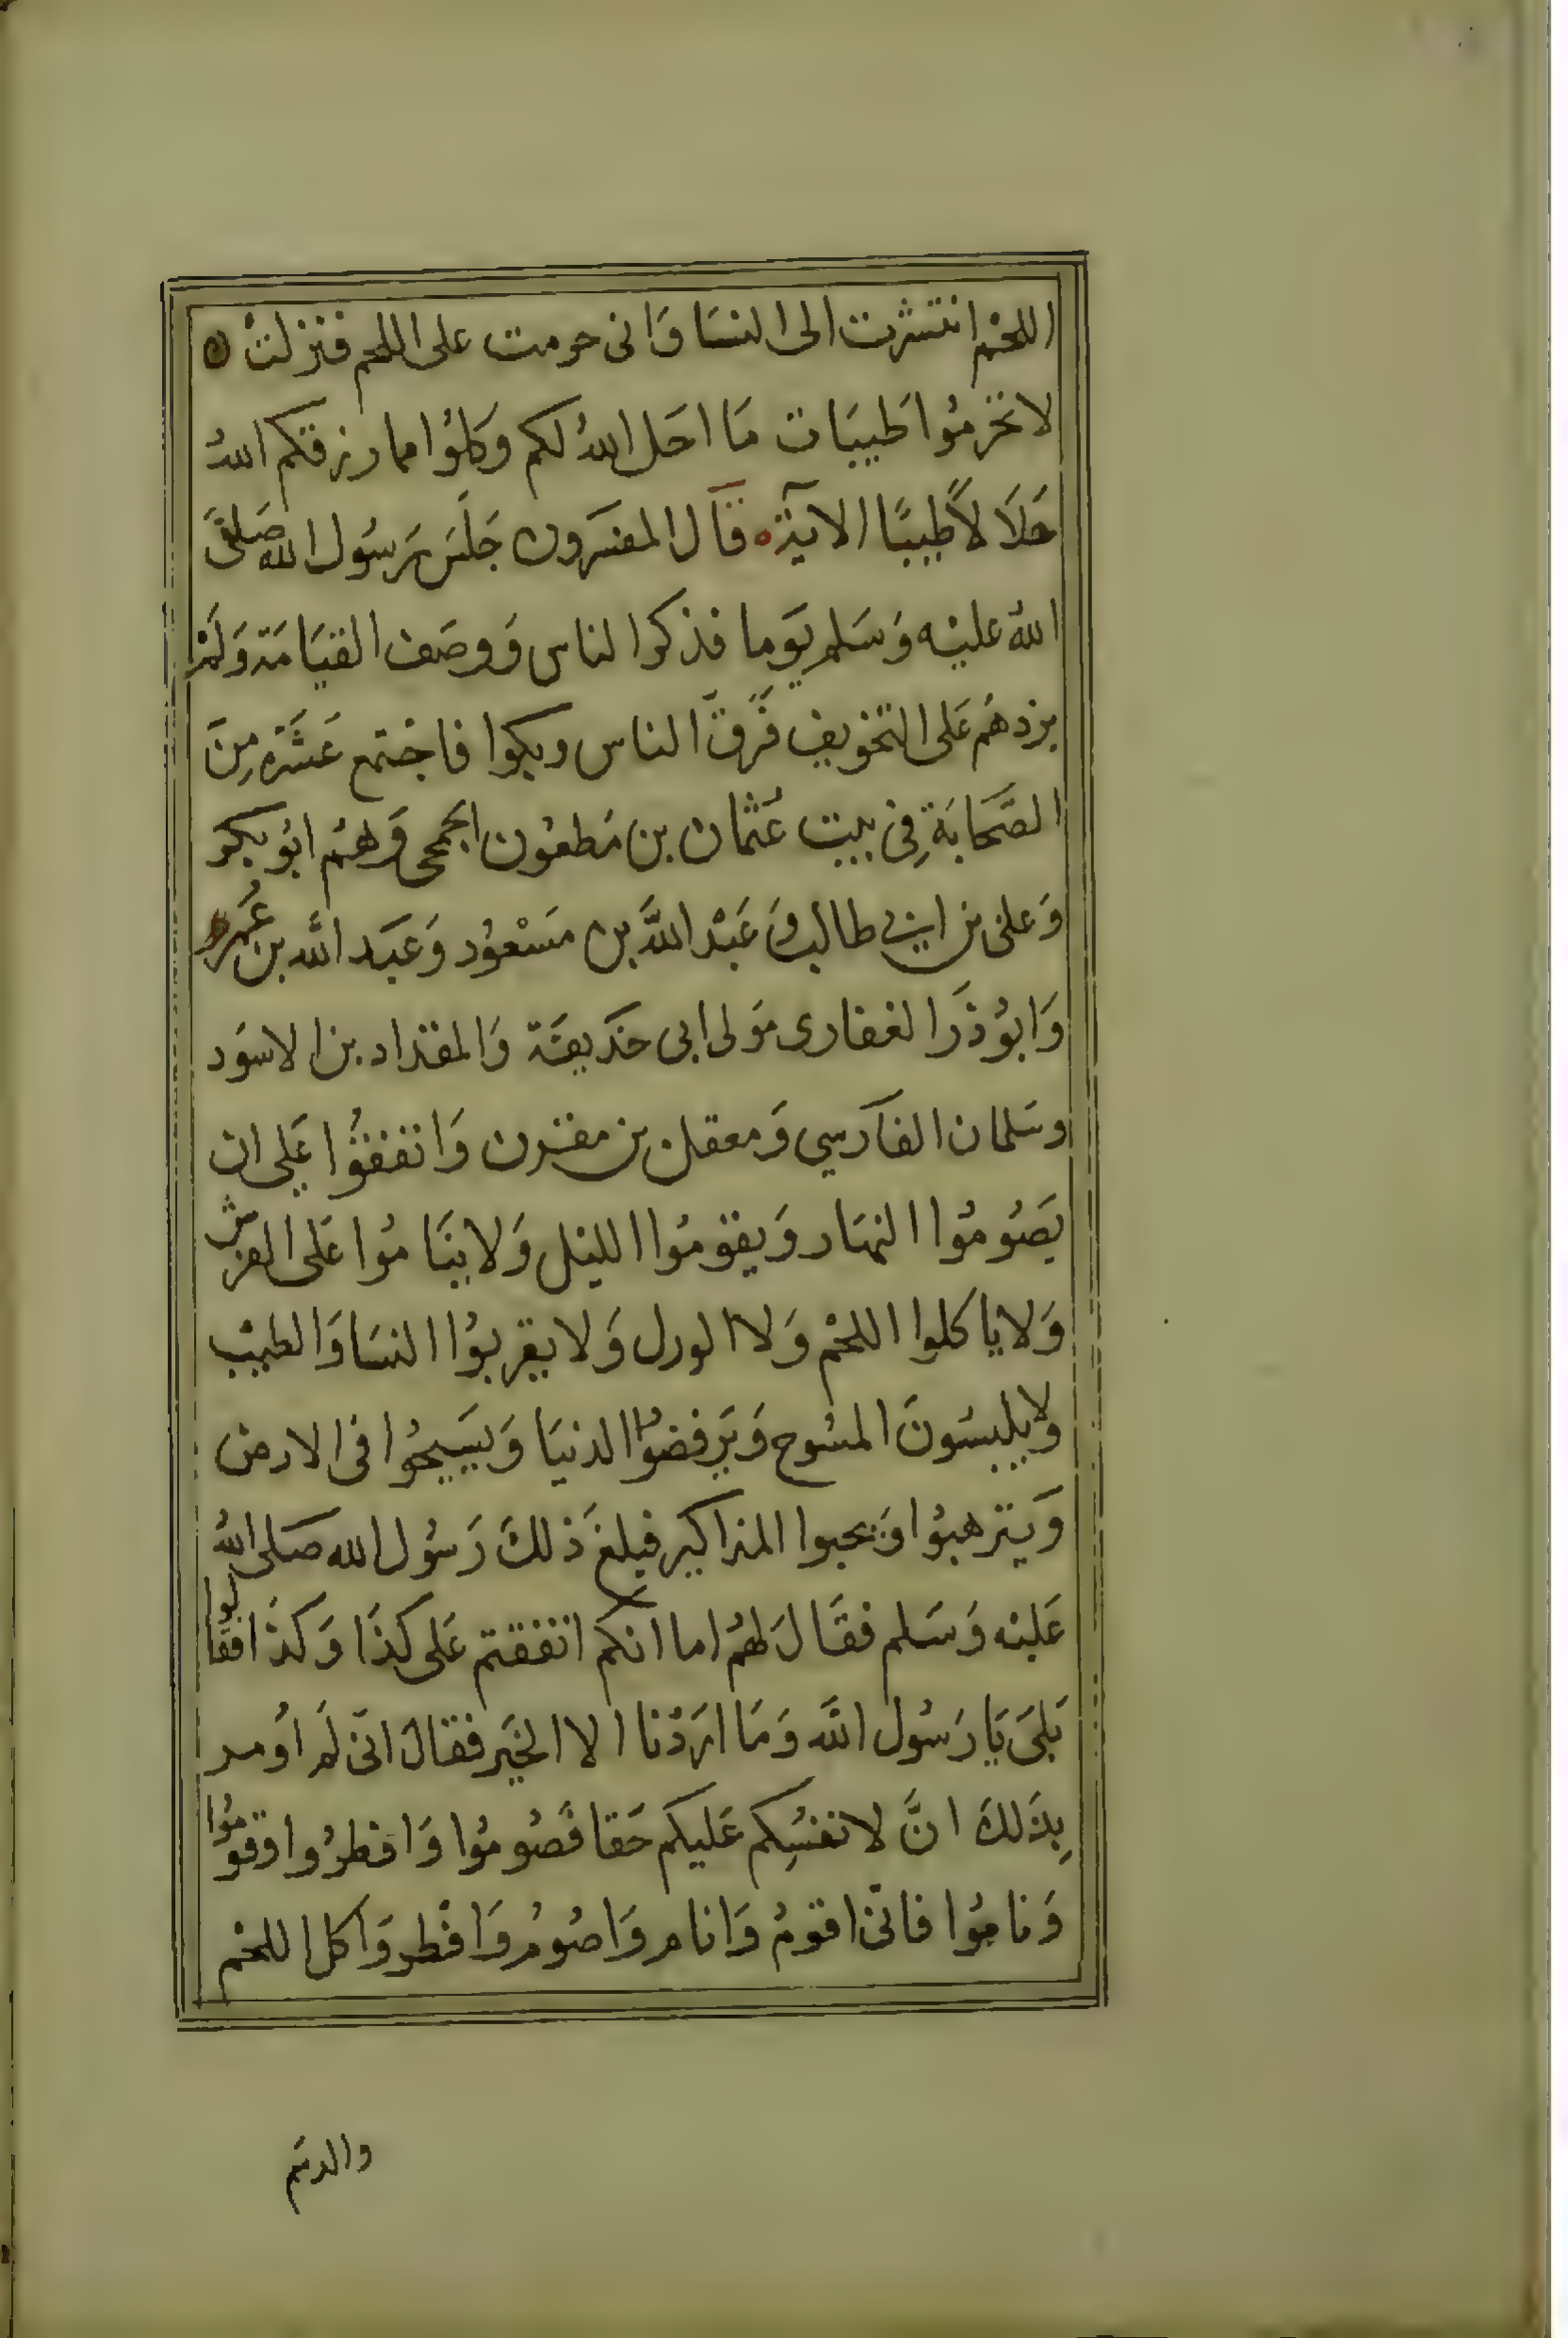 اللحْم انتشرت الى النسَا وَانى حرمت على اللحم فنزلتْ
لا تحرّمُوا طَيبَات مَا احَل اللهُ لكم وَكلوُا مما رزقكم اللهُ
حَلاَ لاً طيبًا الآية قَال المفسَرون جَلَسَ رَسُول الله صَلى
اللهُ عليْه وَسَلم يوَما فذكر الناس وَوصَف القيَامَة وَلَمْ
يزدهُم عَلى التخويف فَرقَّ الناس وبكوا فاجْتمع عَشَرَه مِنَ
الصَّحَابَةِ فِى بيت عُثمان بن مَطعُون الجمحى وَهمُ ابُو بكر
وَعلى بن ابي طالب وَ عَبْد اللَّه بن مَسْعوُد وَعبَد الله بن عُمر
وَابوُ ذَر الغفارى مَولى ابى حَذيفَة وَالمقداد بن الاسوَد
وسَلمان الفَارسي وَمعقل بن مقرن وَاتفقوُا عَلى ان
يَصُومُوا النهَار وَيقومُوا الليْل وَلا ينَامُوا عَلى الفرش
وَلا ياكلوا اللحْم وَلا الودك وَلا يقربوُا النسَا وَالطيبْ
ولا يلبسُونَ المسُوح وَيَرفضوُا الدنيَا وَيسَيحُوا فى الارض
وَيَترهبوُا وَيجبوا المذاكير فبلغَ ذلكَ رَسُول الله صَلى اللهُ
عَليْه وَسَلم فقَالَ لهُم اما انكم اتفقتم عَلى كذَا وَكذَا فقَالوا
بَلىَ يَا رَسُول اللَّه وَمَا ارَدْنا الا الخيَر فقالَ انّى لَم اُومر
بِذَلكَ انَّ لانفسُِكم عَليكم حَقا فَصُومُوا وَافطرُوا وقومُوا
وَنامُوا فانّى اقومُ وَانام وَاصُومُ وَافْطر وَاكل اللحْم
والدسَم